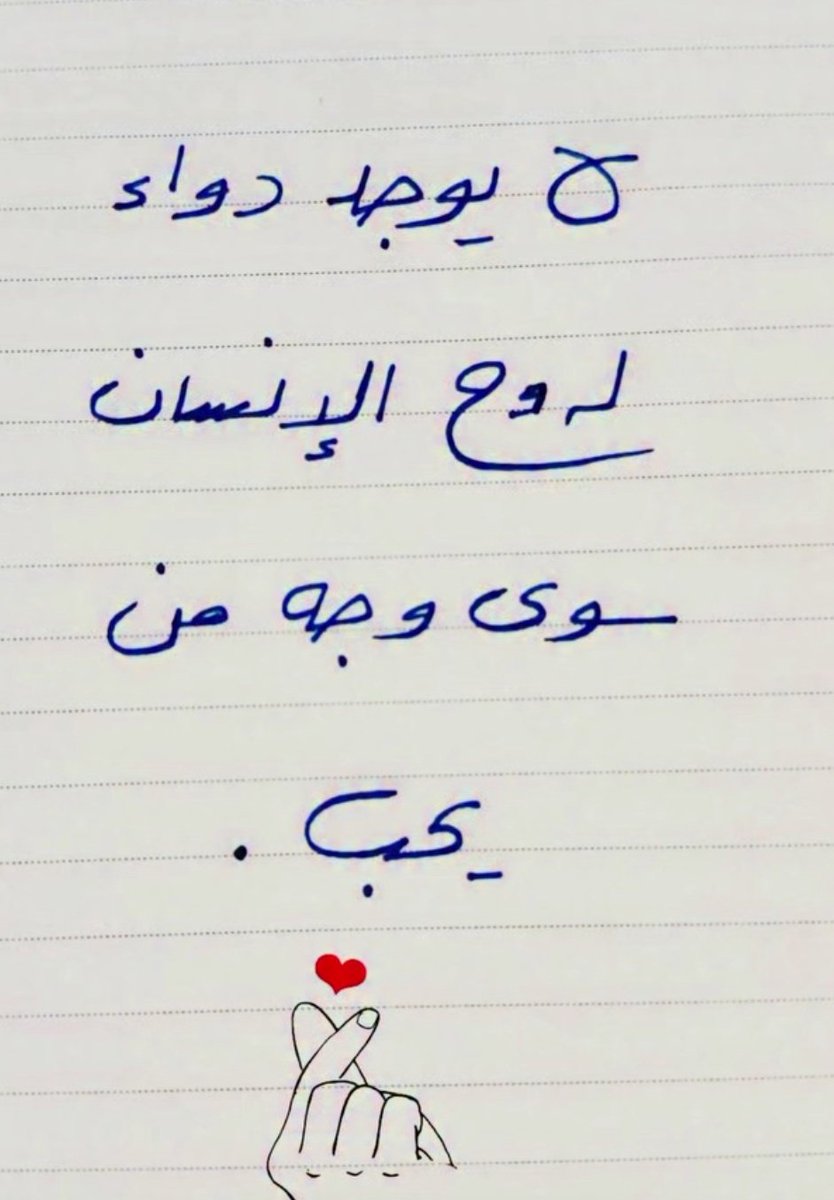 لا يوجد دواء
لروح الإنسان
سوى وجه من
يحب .